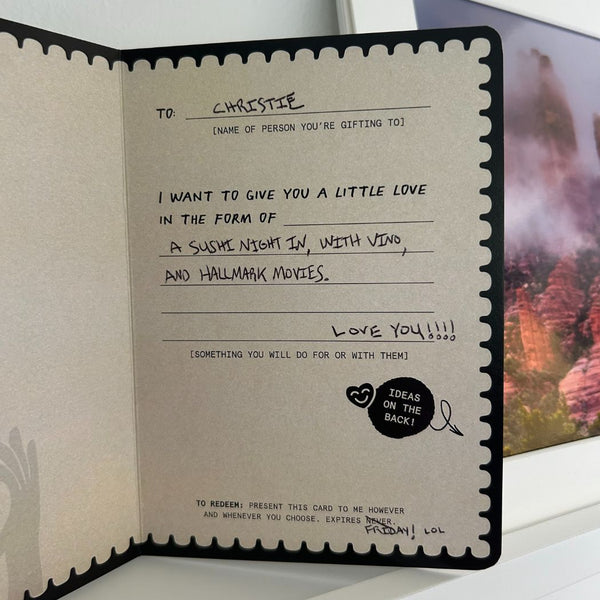 TO: CHRISTIE
[NAME OF PERSON YOU'RE GIFTING TO]
I WANT TO GIVE YOU A LITTLE LOVE
IN THE FORM OF
A SUSHI NIGHT IN, WITH VINO,
AND HALLMARK MOVIES.
LOVE YOU!!!!
[SOMETHING YOU WILL DO FOR OR WITH THEM]
IDEAS
ON THE
BACK!
TO REDEEM; PRESENT THIS CARD TO ME HOWEVER
AND WHENEVER YOU CHOOSE. EXPIRES NEVER.
FRIDAY! LOL